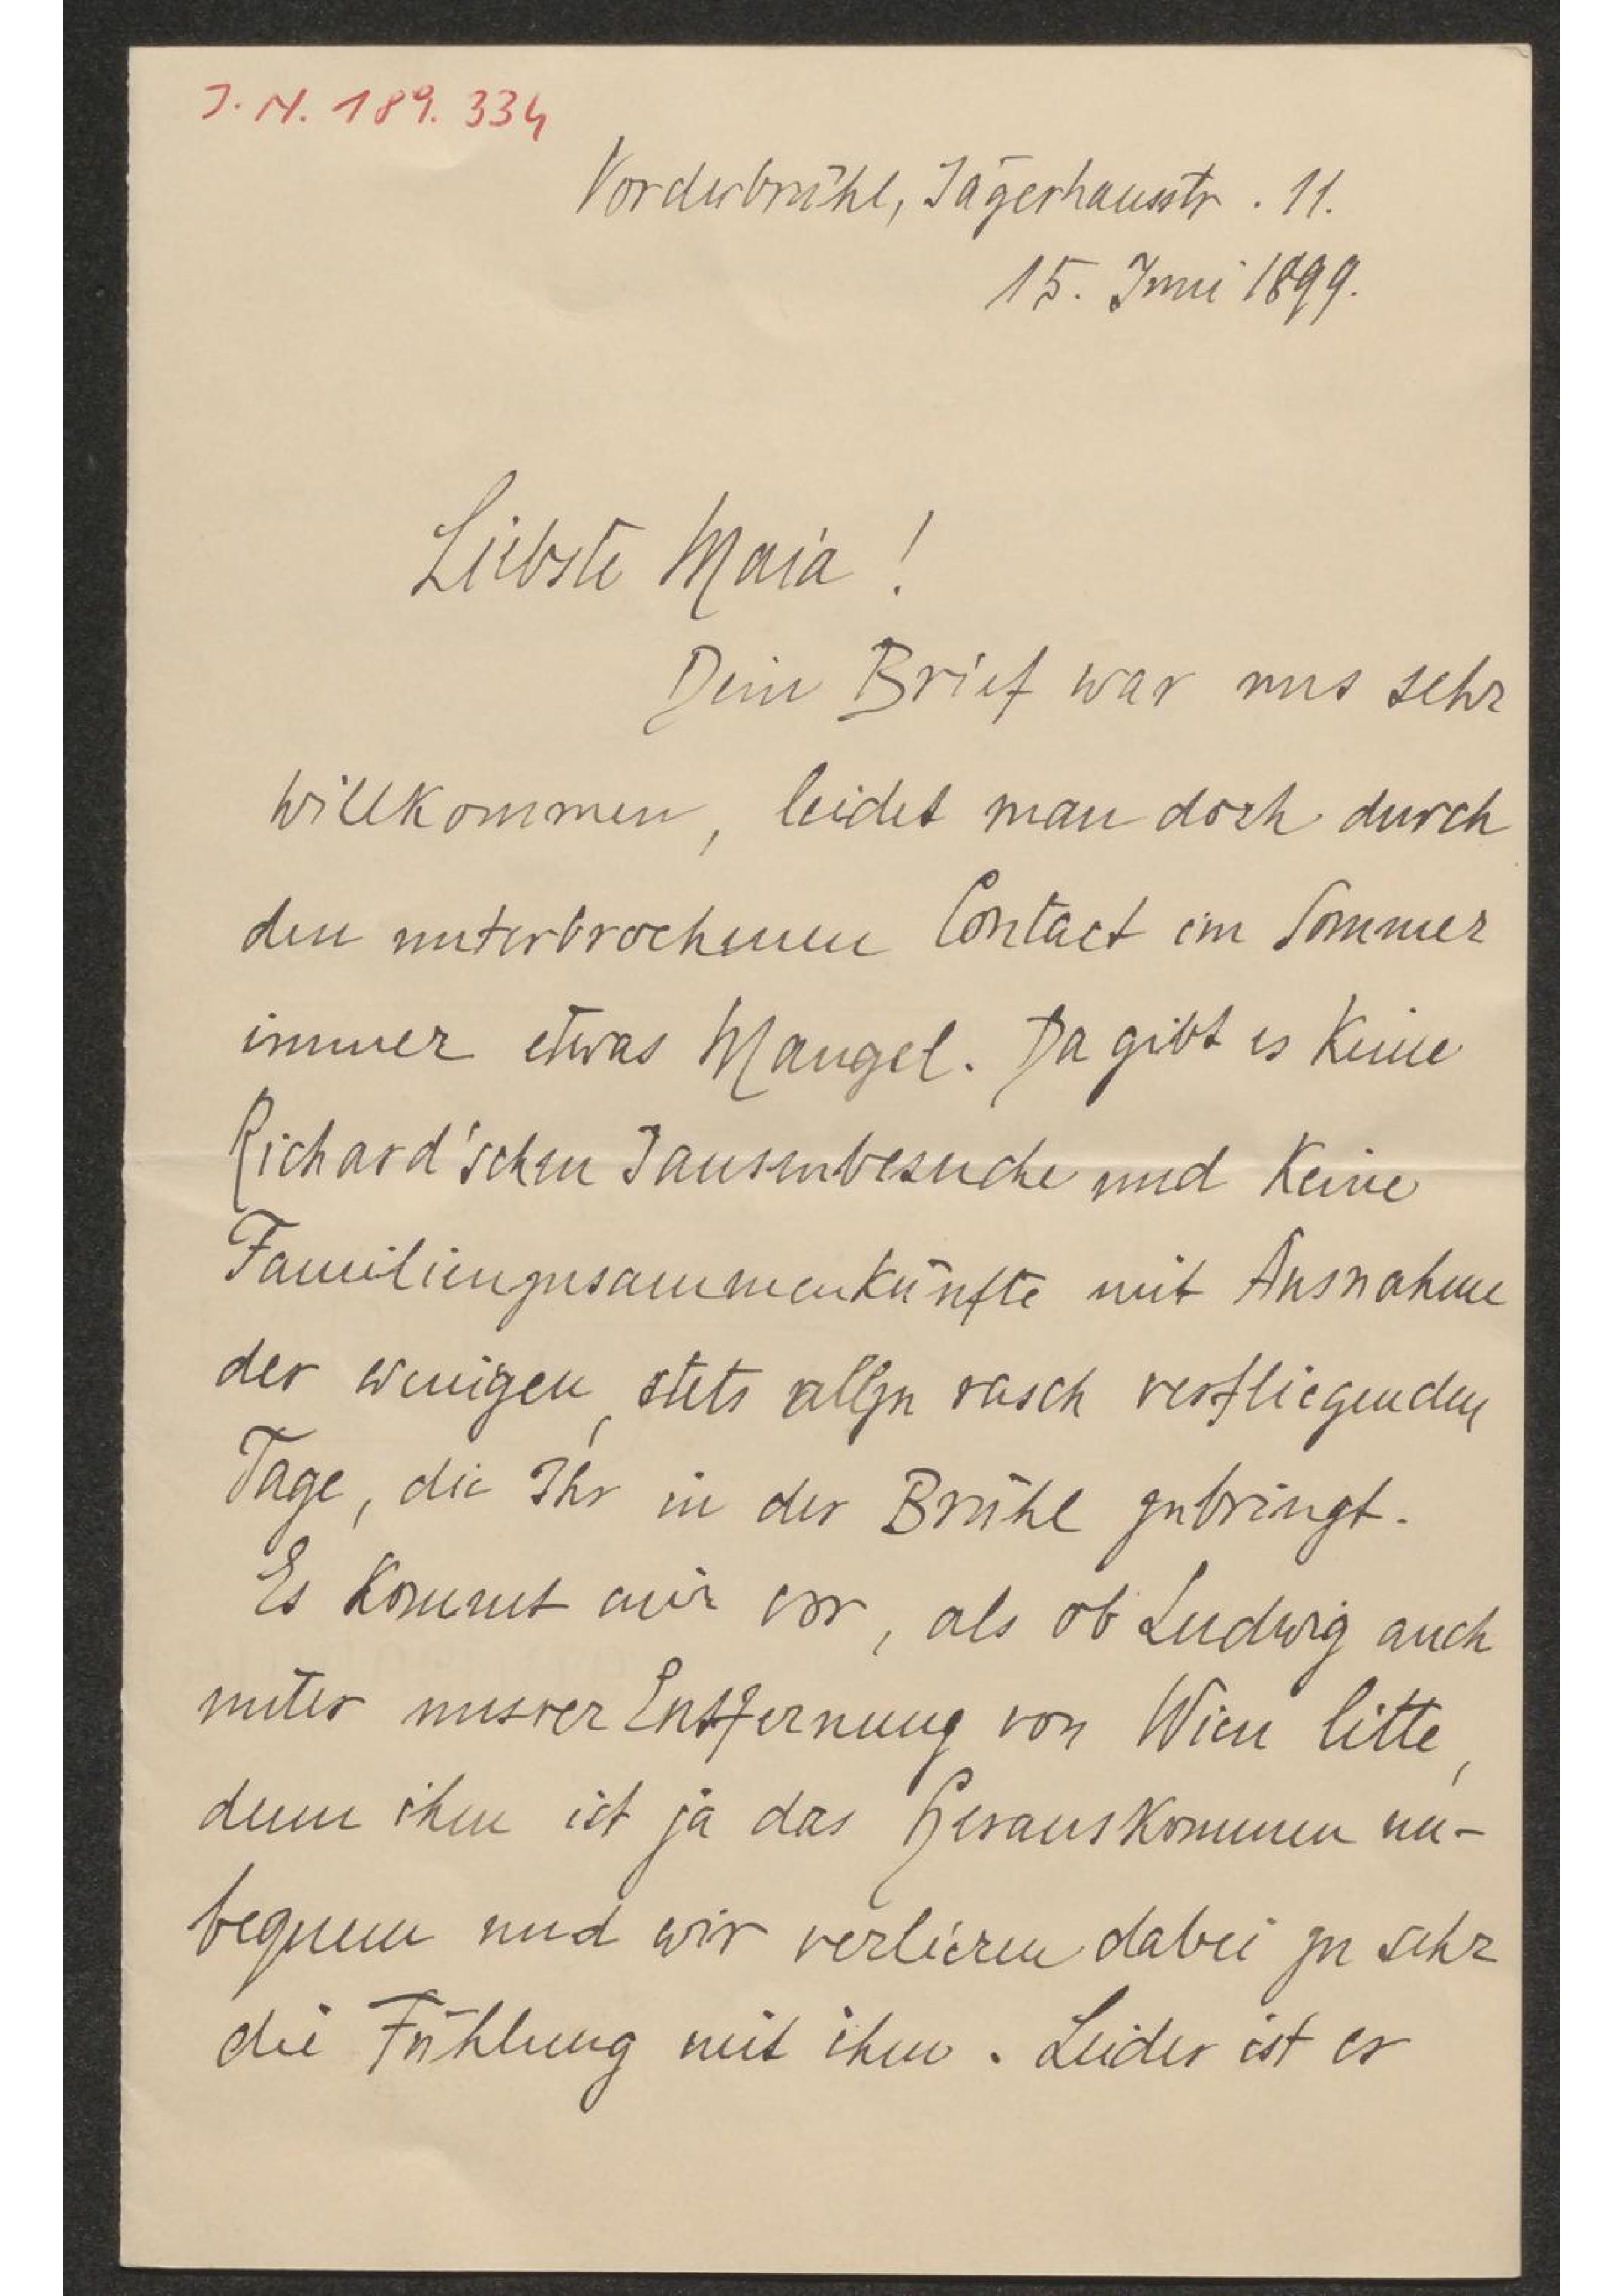 J. N. 189. 334
Vorderbrühl, Jägerhausstr. 11.
15. Juni 1899.
Liebste Maia!
Dein Brief war uns sehr
willkommen, leidet man doch durch
den unterbrochenen Contact im Sommer
immer etwas Mangel. Da gibt es keine
Richard'schen Jausenbesuche und keine
Familienzusammenkünfte mit Ausnahme
der wenigen, stets allzu rasch verfliegenden
Tage, die Ihr in der Brühl zubringt.
Es kommt mir vor, als ob Ludwig auch
unter unsrer Entfernung von Wien litte,
denn ihm ist ja das Herauskommen un-
bequem und wir verlieren dabei zu sehr
die Fühlung mit ihm. Leider ist er